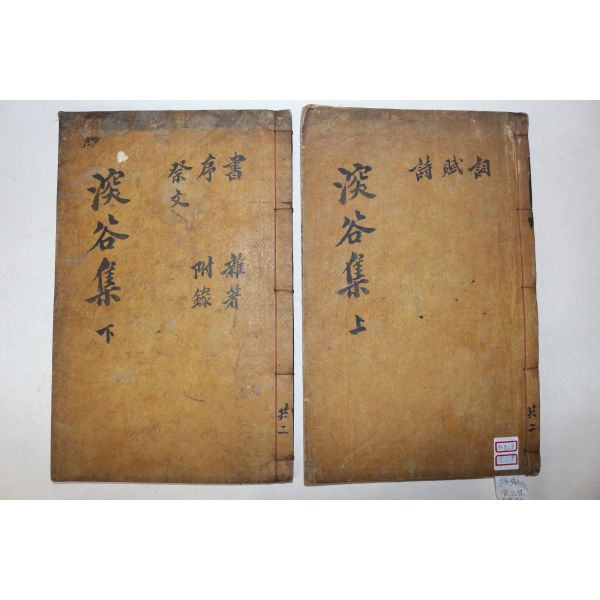 詞
賦
詩
深谷集 上
共二
書 雜著
序 附錄
祭文
深谷集 下
共二